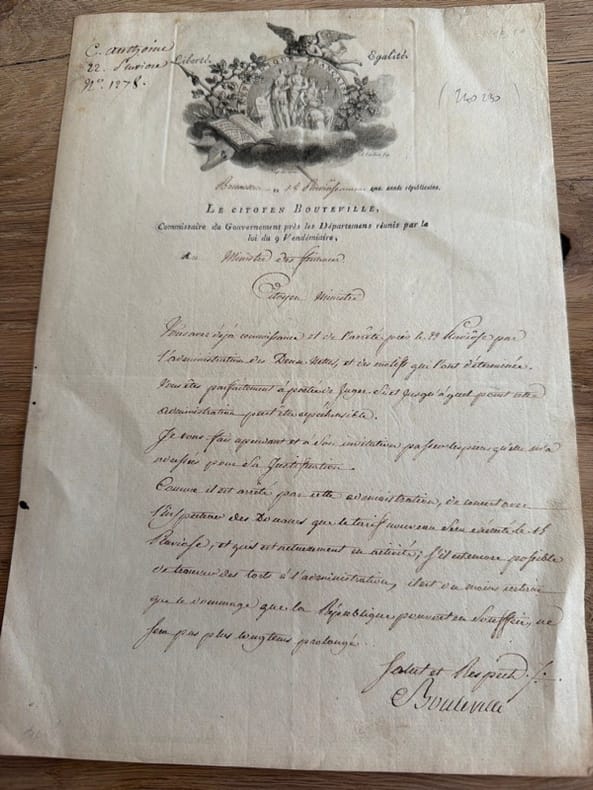 C. anthoine
22. Pluviose
N°. 1278.
Liberté.
Egalité.
REPUBLIQUE FRANÇAISE
(240 230)
Bruxelles 18 Pluviôse an années républicaine.
LE CITOYEN BOUTEVILLE,
Commissaire du Gouvernement près les Départemens réunis par la
loi du 9 Vendémiaire,
Au Ministre des finances
Citoyen Ministre
Vous avez déjà connaissance et de l'arrêté pris le 29 Nivôse par
l'administration des Deux Nethes, et des motifs qui l'ont déterminée.
Vous êtes parfaitement à portée de juger si et jusqu'à quel point cette
administration peut être répréhensible.
Je vous fais cependant et à son invitation passer les pièces qu'elle m'a
adressées pour sa justification.
Comme il est arrêté par cette administration, de concert avec
l'inspecteur des Douanes que le tarif nouveau sera exécuté le 15
Pluviose, et qu'il est actuellement en activité, s'il est encore possible
de trouver des torts à l'administration, il est du moins certain
que le dommage que la République pouvait en souffrir, ne
sera pas plus longtems prolongé.
Salut et Respect.
Bouteville